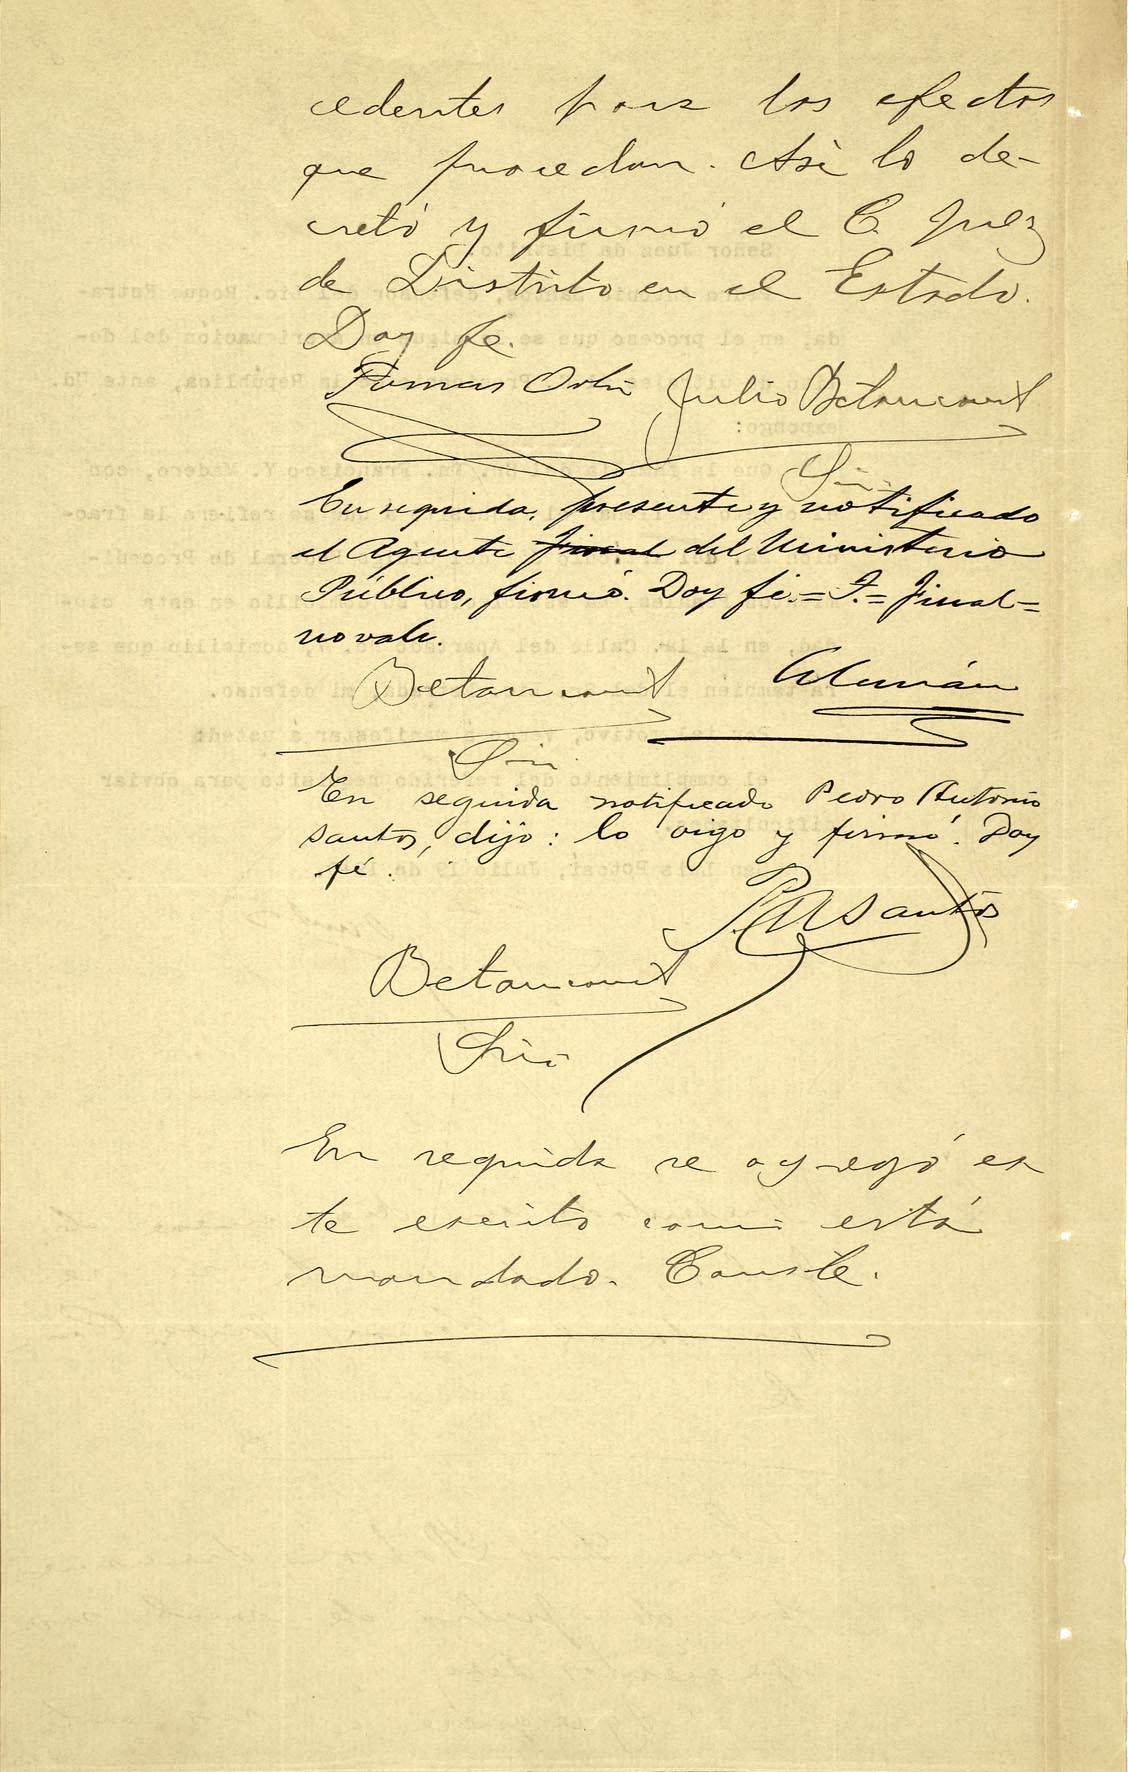 cedentes para los efectos
que procedan. Así lo de-
cretó y firmó el C. Juez
de Distrito en el Estado.
Doy fe.
Tomas Ortiz Julio Betancourt
Srio.
En seguida, presente y notificado
el Agente fiscal del Ministerio
Público, firmó. Doy fé.=T.=fiscal=
no vale.
Betancourt Alemán
Srio.
En seguida notificado Pedro Antonio
Santos, dijo: lo oigo y firmó. Doy
fé.
P. A. Santos
Betancourt
Srio
En seguida se agregó es
te escrito como está
mandado. Conste.